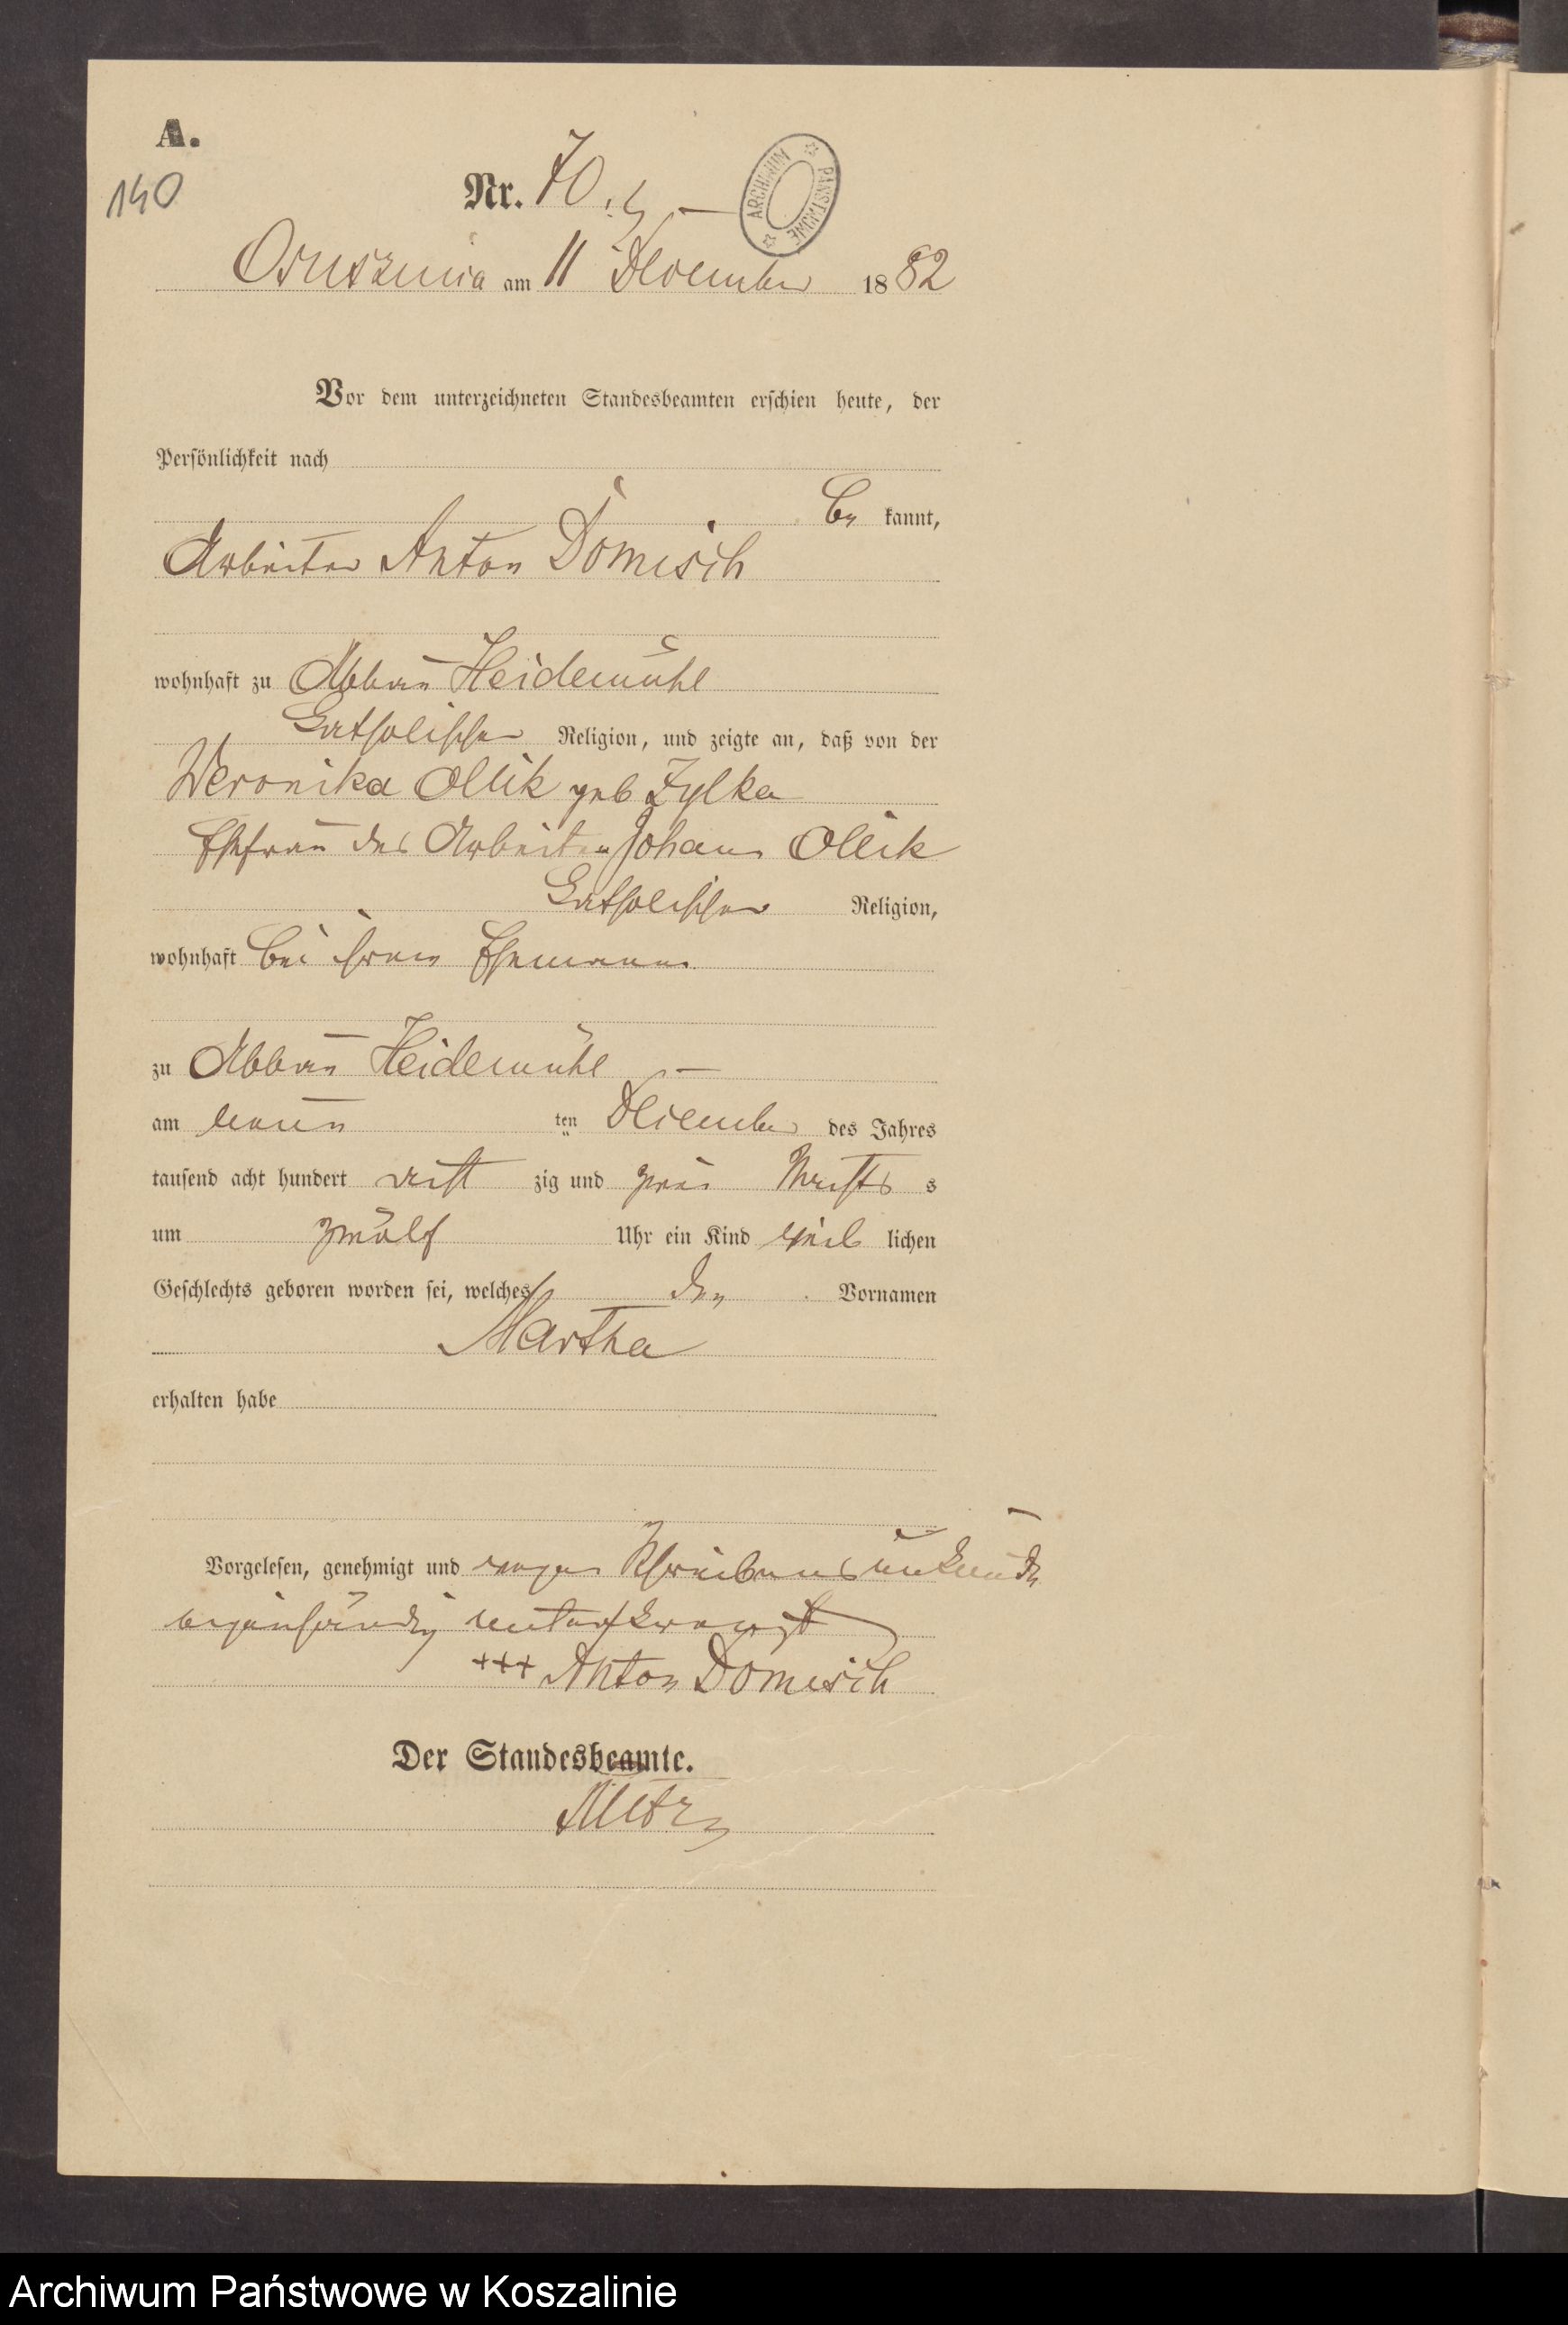 A.
140
Nr. 70.
ARCHIWUM PAŃSTWOWE
Osuszniza am 11 December 1882
Vor dem unterzeichneten Standesbeamten erschien heute, der
Persönlichkeit nach
be kannt,
Arbeiter Anton Domisch
wohnhaft zu Abbau Heidemühl
katholischer Religion, und zeigte an, daß von der
Weronika Ollik geb Zylka
Ehefrau des Arbeiters Johann Ollik
katholischer Religion,
wohnhaft bei ihrem Ehemanne
zu Abbau Heidemühl
am neun ten December des Jahres
tausend acht hundert acht zig und zwei Nachts s
um zwölf Uhr ein Kind weib lichen
Geschlechts geboren worden sei, welches den Vornamen
Martha
erhalten habe
Vorgelesen, genehmigt und wegen Schreibensunkunde
unterkreuzt
+++ Anton Domisch
Der Standesbeamte.
Archiwum Państwowe w Koszalinie